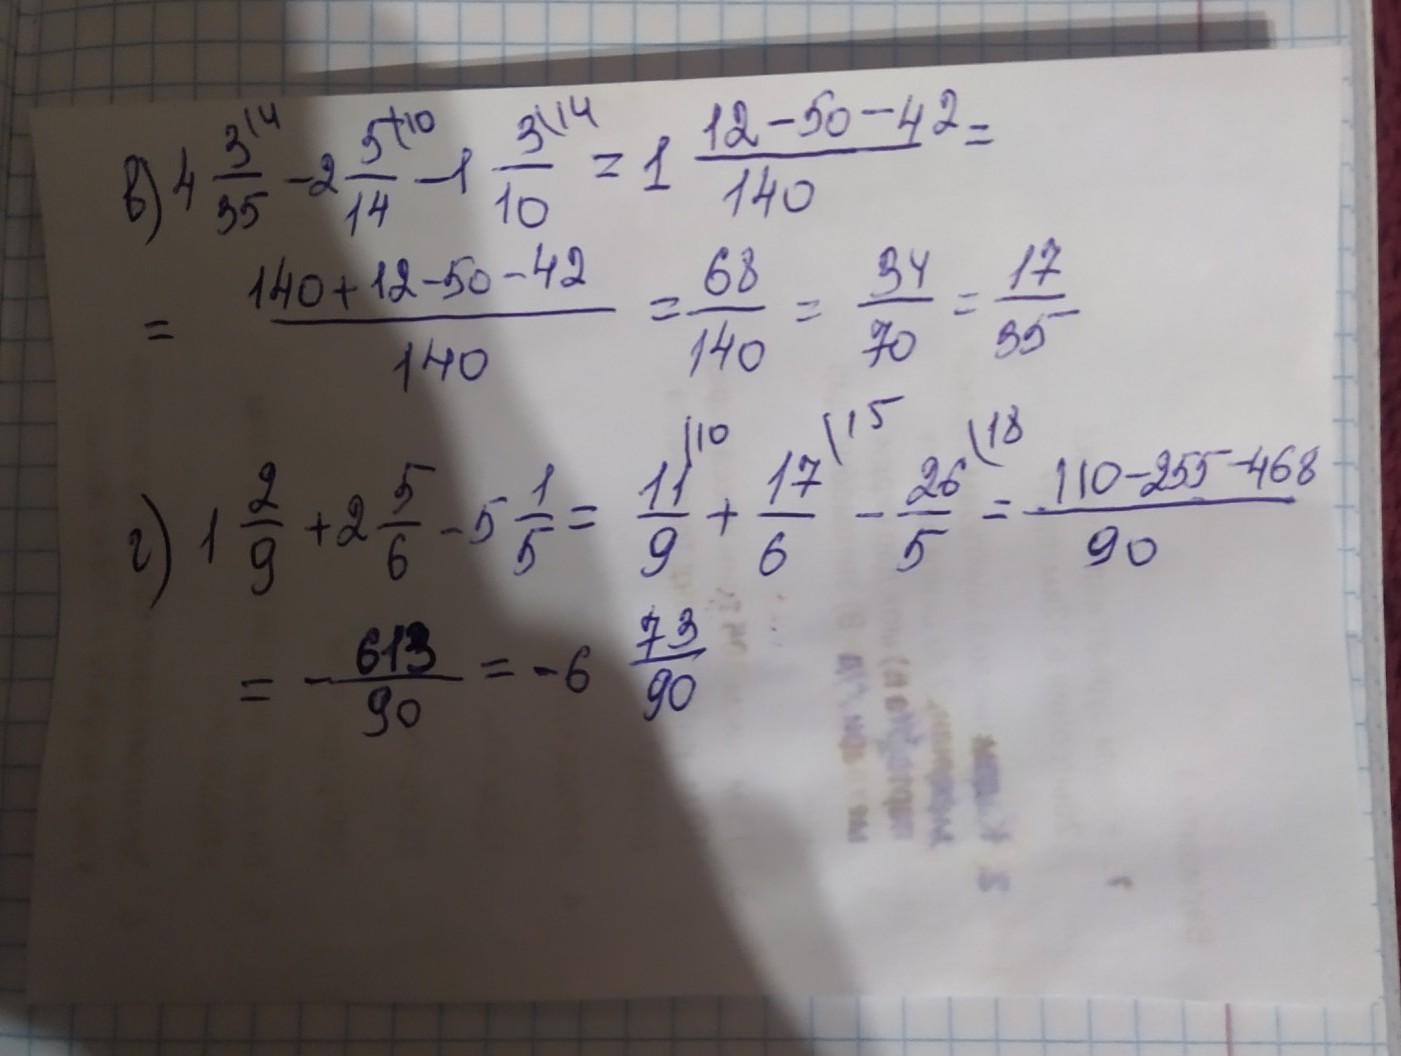 в) 4 3\4/35 - 2 5\10/14 - 1 3\14/10 = 1 (12-50-42)/140 =
= (140+12-50-42)/140 = 68/140 = 34/70 = 17/35
г) 1 2/9 + 2 5/6 - 5 1/5 = 11\10/9 + 17\15/6 - 26\18/5 = (110-255-468)/90
= - 613/90 = -6 73/90